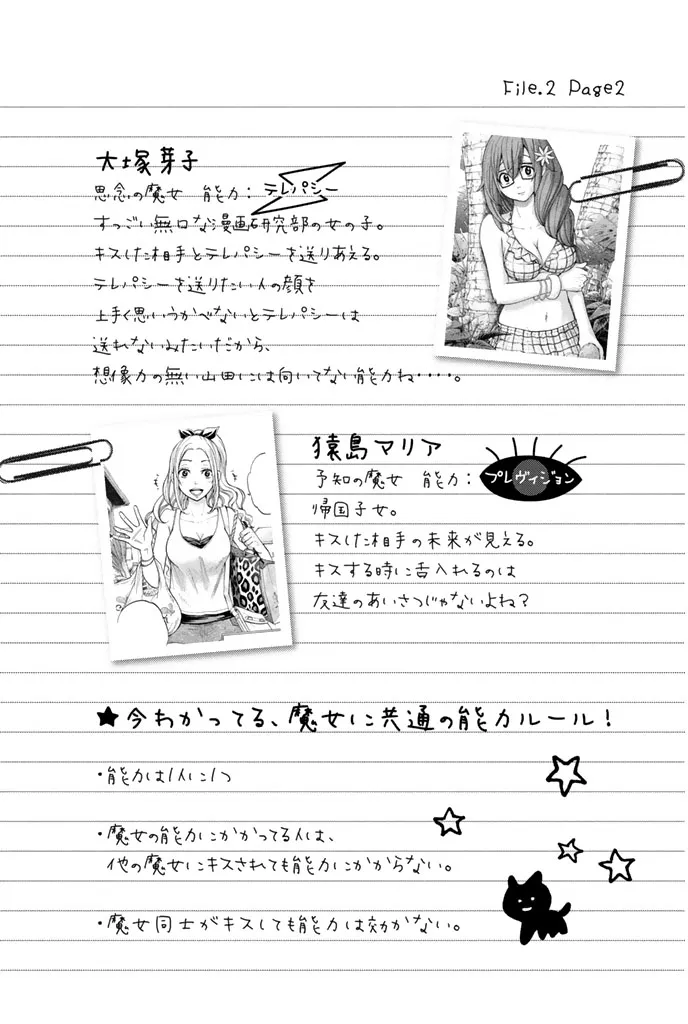 File.2 Page2
大塚芽子
思念の魔女 能力：テレパシー
すっごい無口な漫画研究部の女の子。
キスした相手とテレパシーを送りあえる。
テレパシーを送りたい人の顔を
上手く思いうかべないとテレパシーは
送れないみたいだから、
想像力の無い山田には向いてない能力ね・・・・。
猿島マリア
予知の魔女 能力：プレヴィジョン
帰国子女。
キスした相手の未来が見える。
キスする時に舌入れるのは
友達のあいさつじゃないよね？
★今わかってる、魔女に共通の能力ルール！
・能力は1人に1つ
・魔女の能力にかかってる人は、
他の魔女にキスされても能力にかからない。
・魔女同士がキスしても能力は効かない。